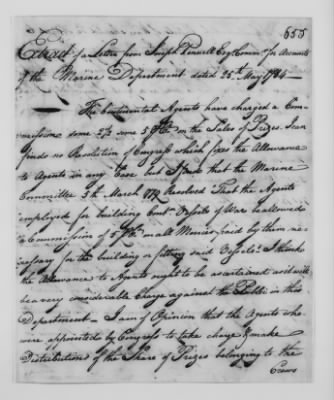 555
Extract of a Letter from Joseph Pennell Esq. Commr. for Accounts
of the Marine Department dated 25th May 1784
The Continental Agents have charged a Com-
mission some 2½ some 5 PCt. on the Sales of Prizes. I can
find no Resolution of Congress which fixes the Allowance
to Agents in any Case but I find that the Marine
Committee 5th March Resolved That the Agents
employed for building Contl. Vessels of War be allowed
a Commission of 5 PCt. on all Monies paid by them ne-
cessary for the building or fitting said Vessels. I think
the Allowance to Agents ought to be ascertained as it will
be a very considerable Charge against the Public in this
Department. I am of Opinion that the Agents who
were appointed by Congress to take charge & make
Distributions of the Share of Prizes belonging to the
Crews